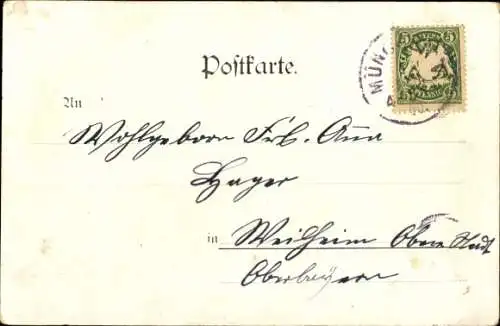 Postkarte.
An
Wohlgeboren Frl. Anna
Hager
in Weilheim Obere Stadt
Oberbayern
MÜN
5 BAYERN 5
PFENNIG